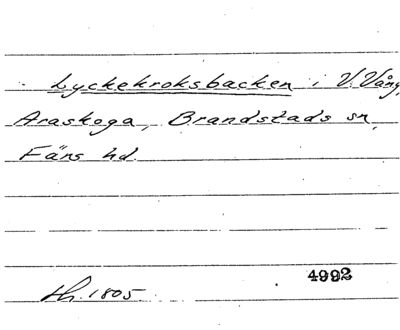 Lyckekroksbacken i V. Vång,
Araskoga, Brandstads sn,
Färs hd.
4992
Hh. 1805